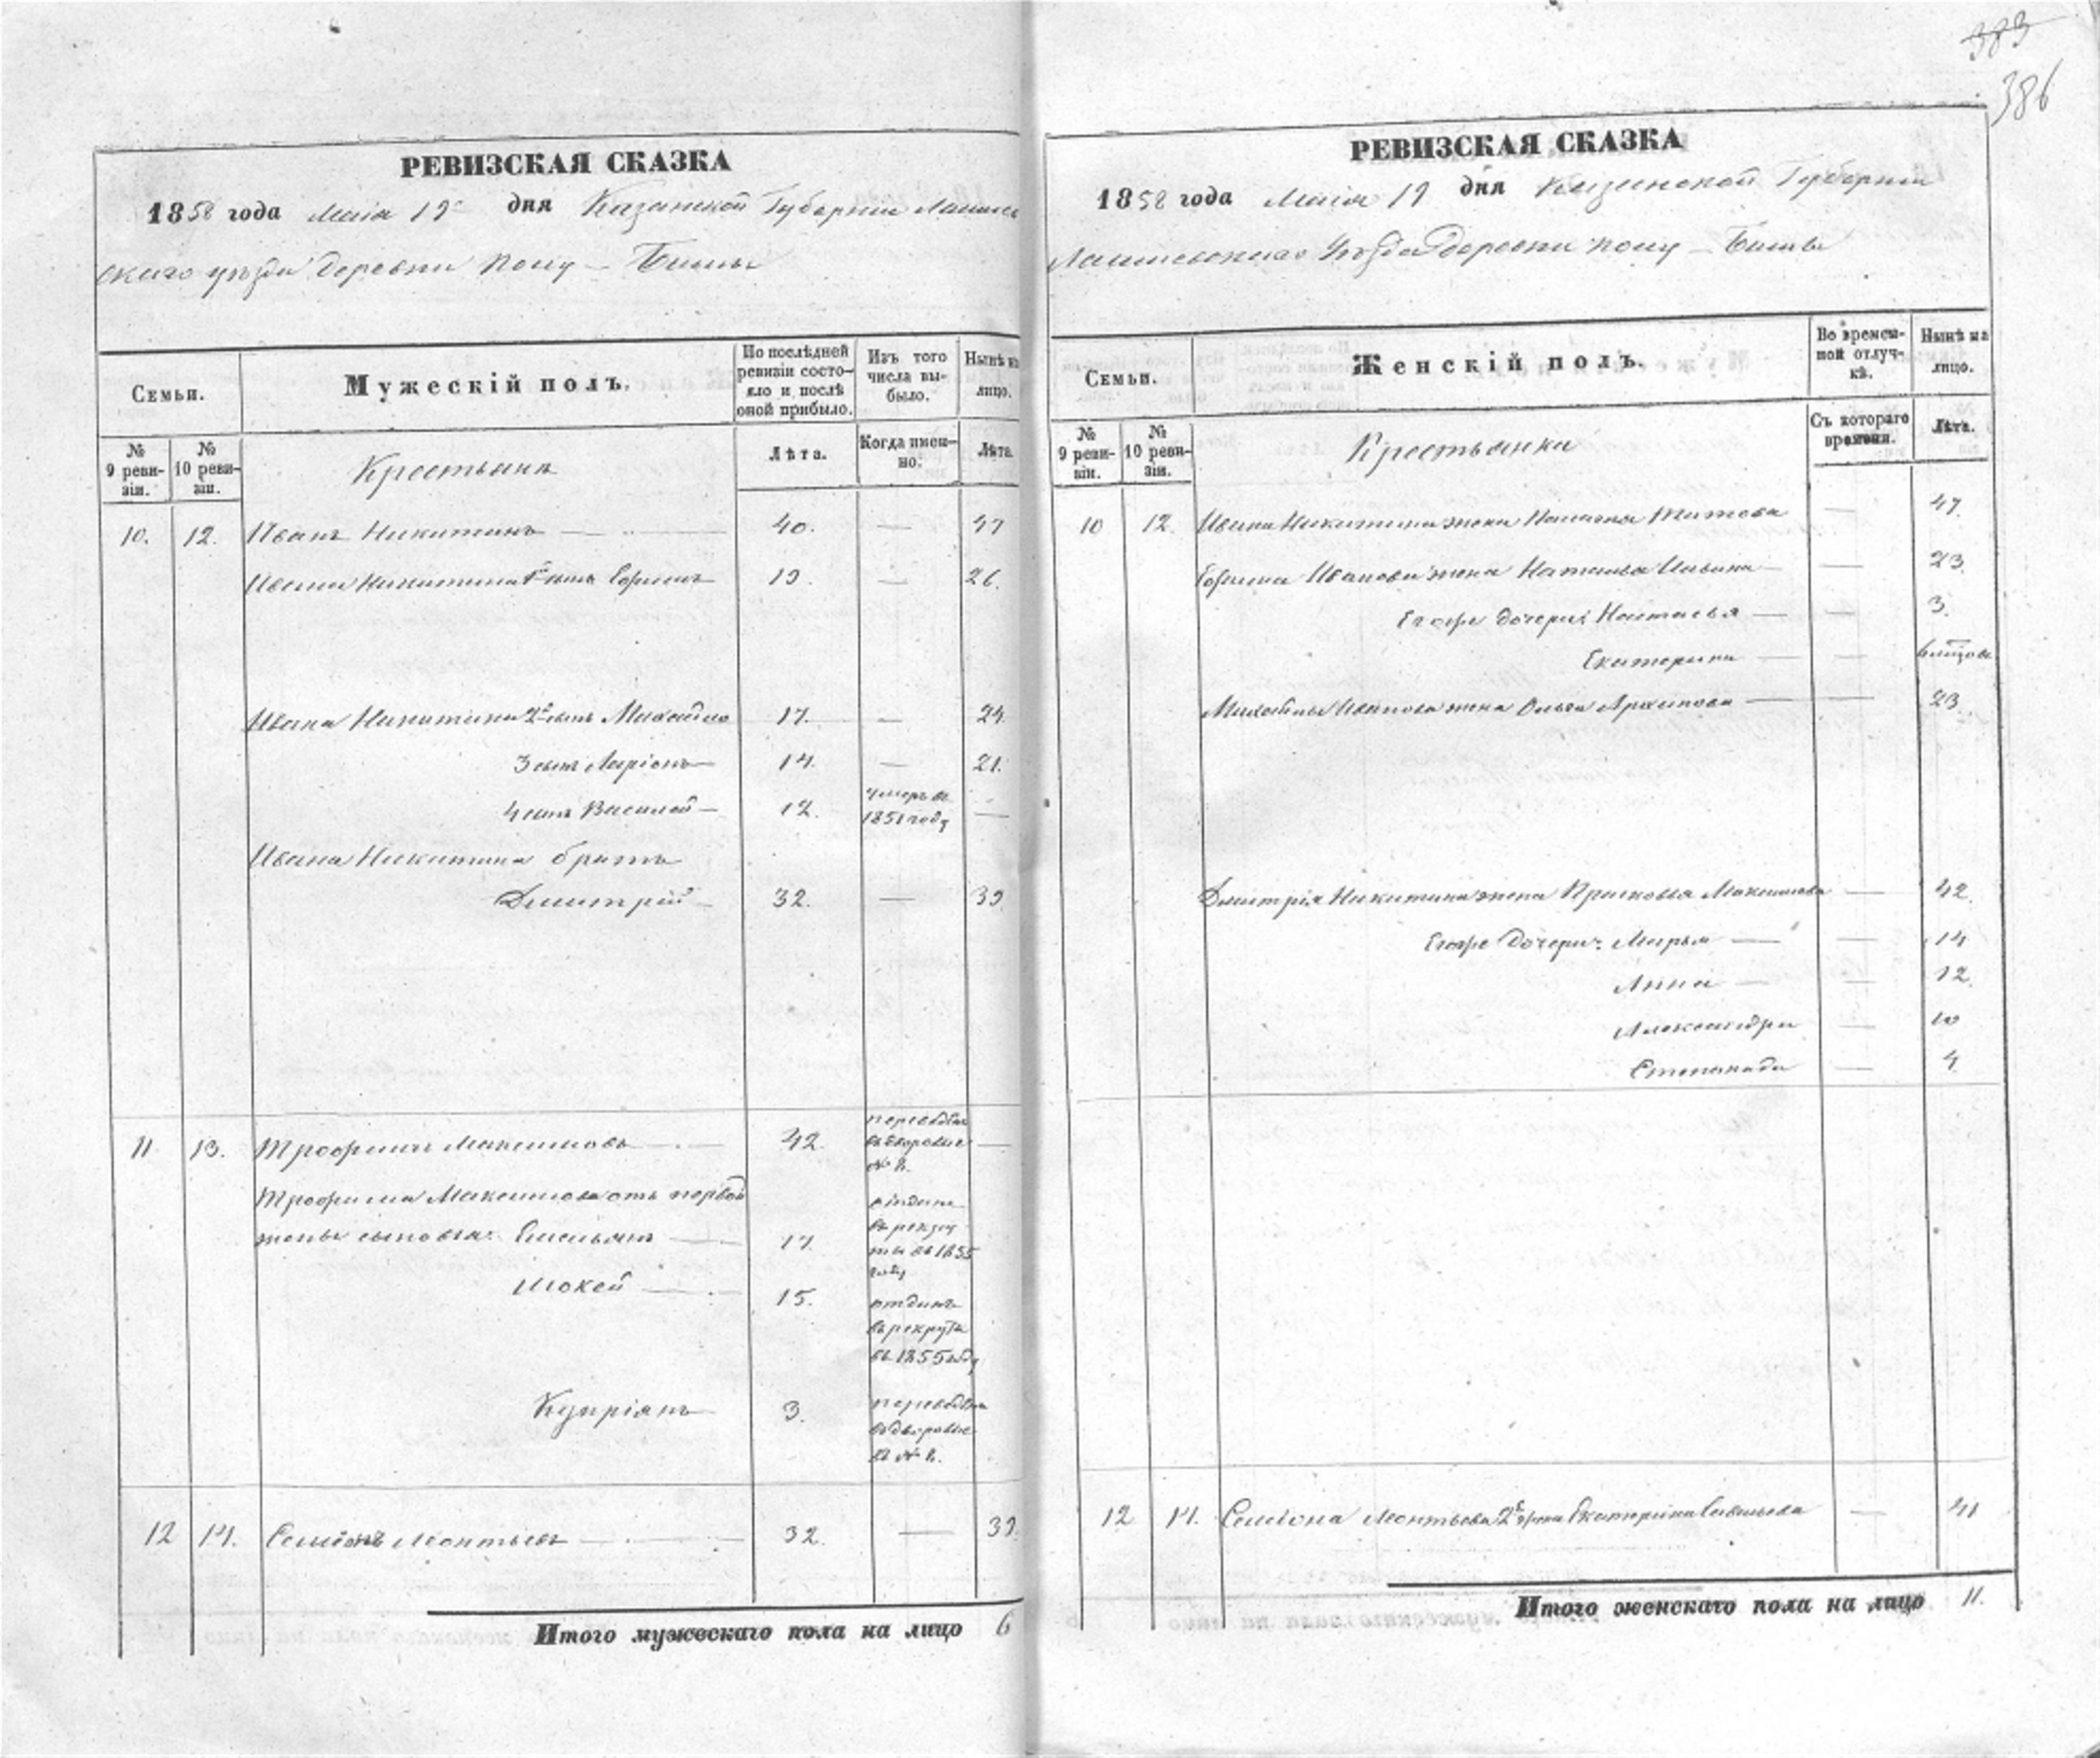 383
386
РЕВИЗСКАЯ СКАЗКА
1858 года Маiя 19 дня Казанской Губернiи Лаишев
скаго уѣзда деревни Пому – Бишъ
Семьи.
Мужескiй полъ.
По послѣдней ревизiи состояло и послѣ оной прибыло.
Изъ того числа выбыло.
Нынѣ на лицо.
№ 9 ревизiи.
№ 10 ревизiи.
Крестьянъ
Лѣта.
Когда именно.
Лѣта.
10. 12. Иванъ Никитинъ 40. — 47
Ивана Никитина 1й сынъ Ефимъ 19. — 26.
Ивана Никитина 2й сынъ Михайло 17. — 24.
3 сынъ Ларiонъ 14. — 21.
4 сынъ Василей 12. умеръ въ 1851 году —
Ивана Никитина братъ
Дмитрiй 32. — 39
11 13. Трофимъ Максимовъ 42. переведенъ въ дворовые № 2. —
Трофима Максимова отъ первой
жены сыновья: Емельянъ 17. отданъ въ рекруты въ 1855 году
Мокей 15. отданъ въ рекруты въ 1855 году
Купрiянъ 3. переведенъ въ дворовые № 2.
12 14. Семёнъ Леонтьевъ 32. — 39
Итого мужескаго пола на лицо 6
РЕВИЗСКАЯ СКАЗКА
1858 года Маiя 19 дня Казанской Губернiи
Лаишевскаго Уѣзда деревни Пому – Бишъ
Семьи.
Женскiй полъ.
Во временной отлучкѣ.
Нынѣ на лицо.
№ 9 ревизiи.
№ 10 ревизiи.
Крестьянки
Съ котораго времени.
Лѣта.
10 12. Ивана Никитина жена Титова — 47.
Ефима Иванова жена Наталья — 23.
Егоже дочери: Настасья — 3.
Екатерина —
Михайлы Иванова жена Ольга Архипова — 23.
Дмитрiя Никитина жена Прасковья Максимова — 42.
Егоже дочери: Марья — 14
Анна — 12.
Александра — 10
Степанида — 4.
12 14. Семёна Леонтьева 2я жена Екатерина Савельева — 41
Итого женскаго пола на лицо 11.